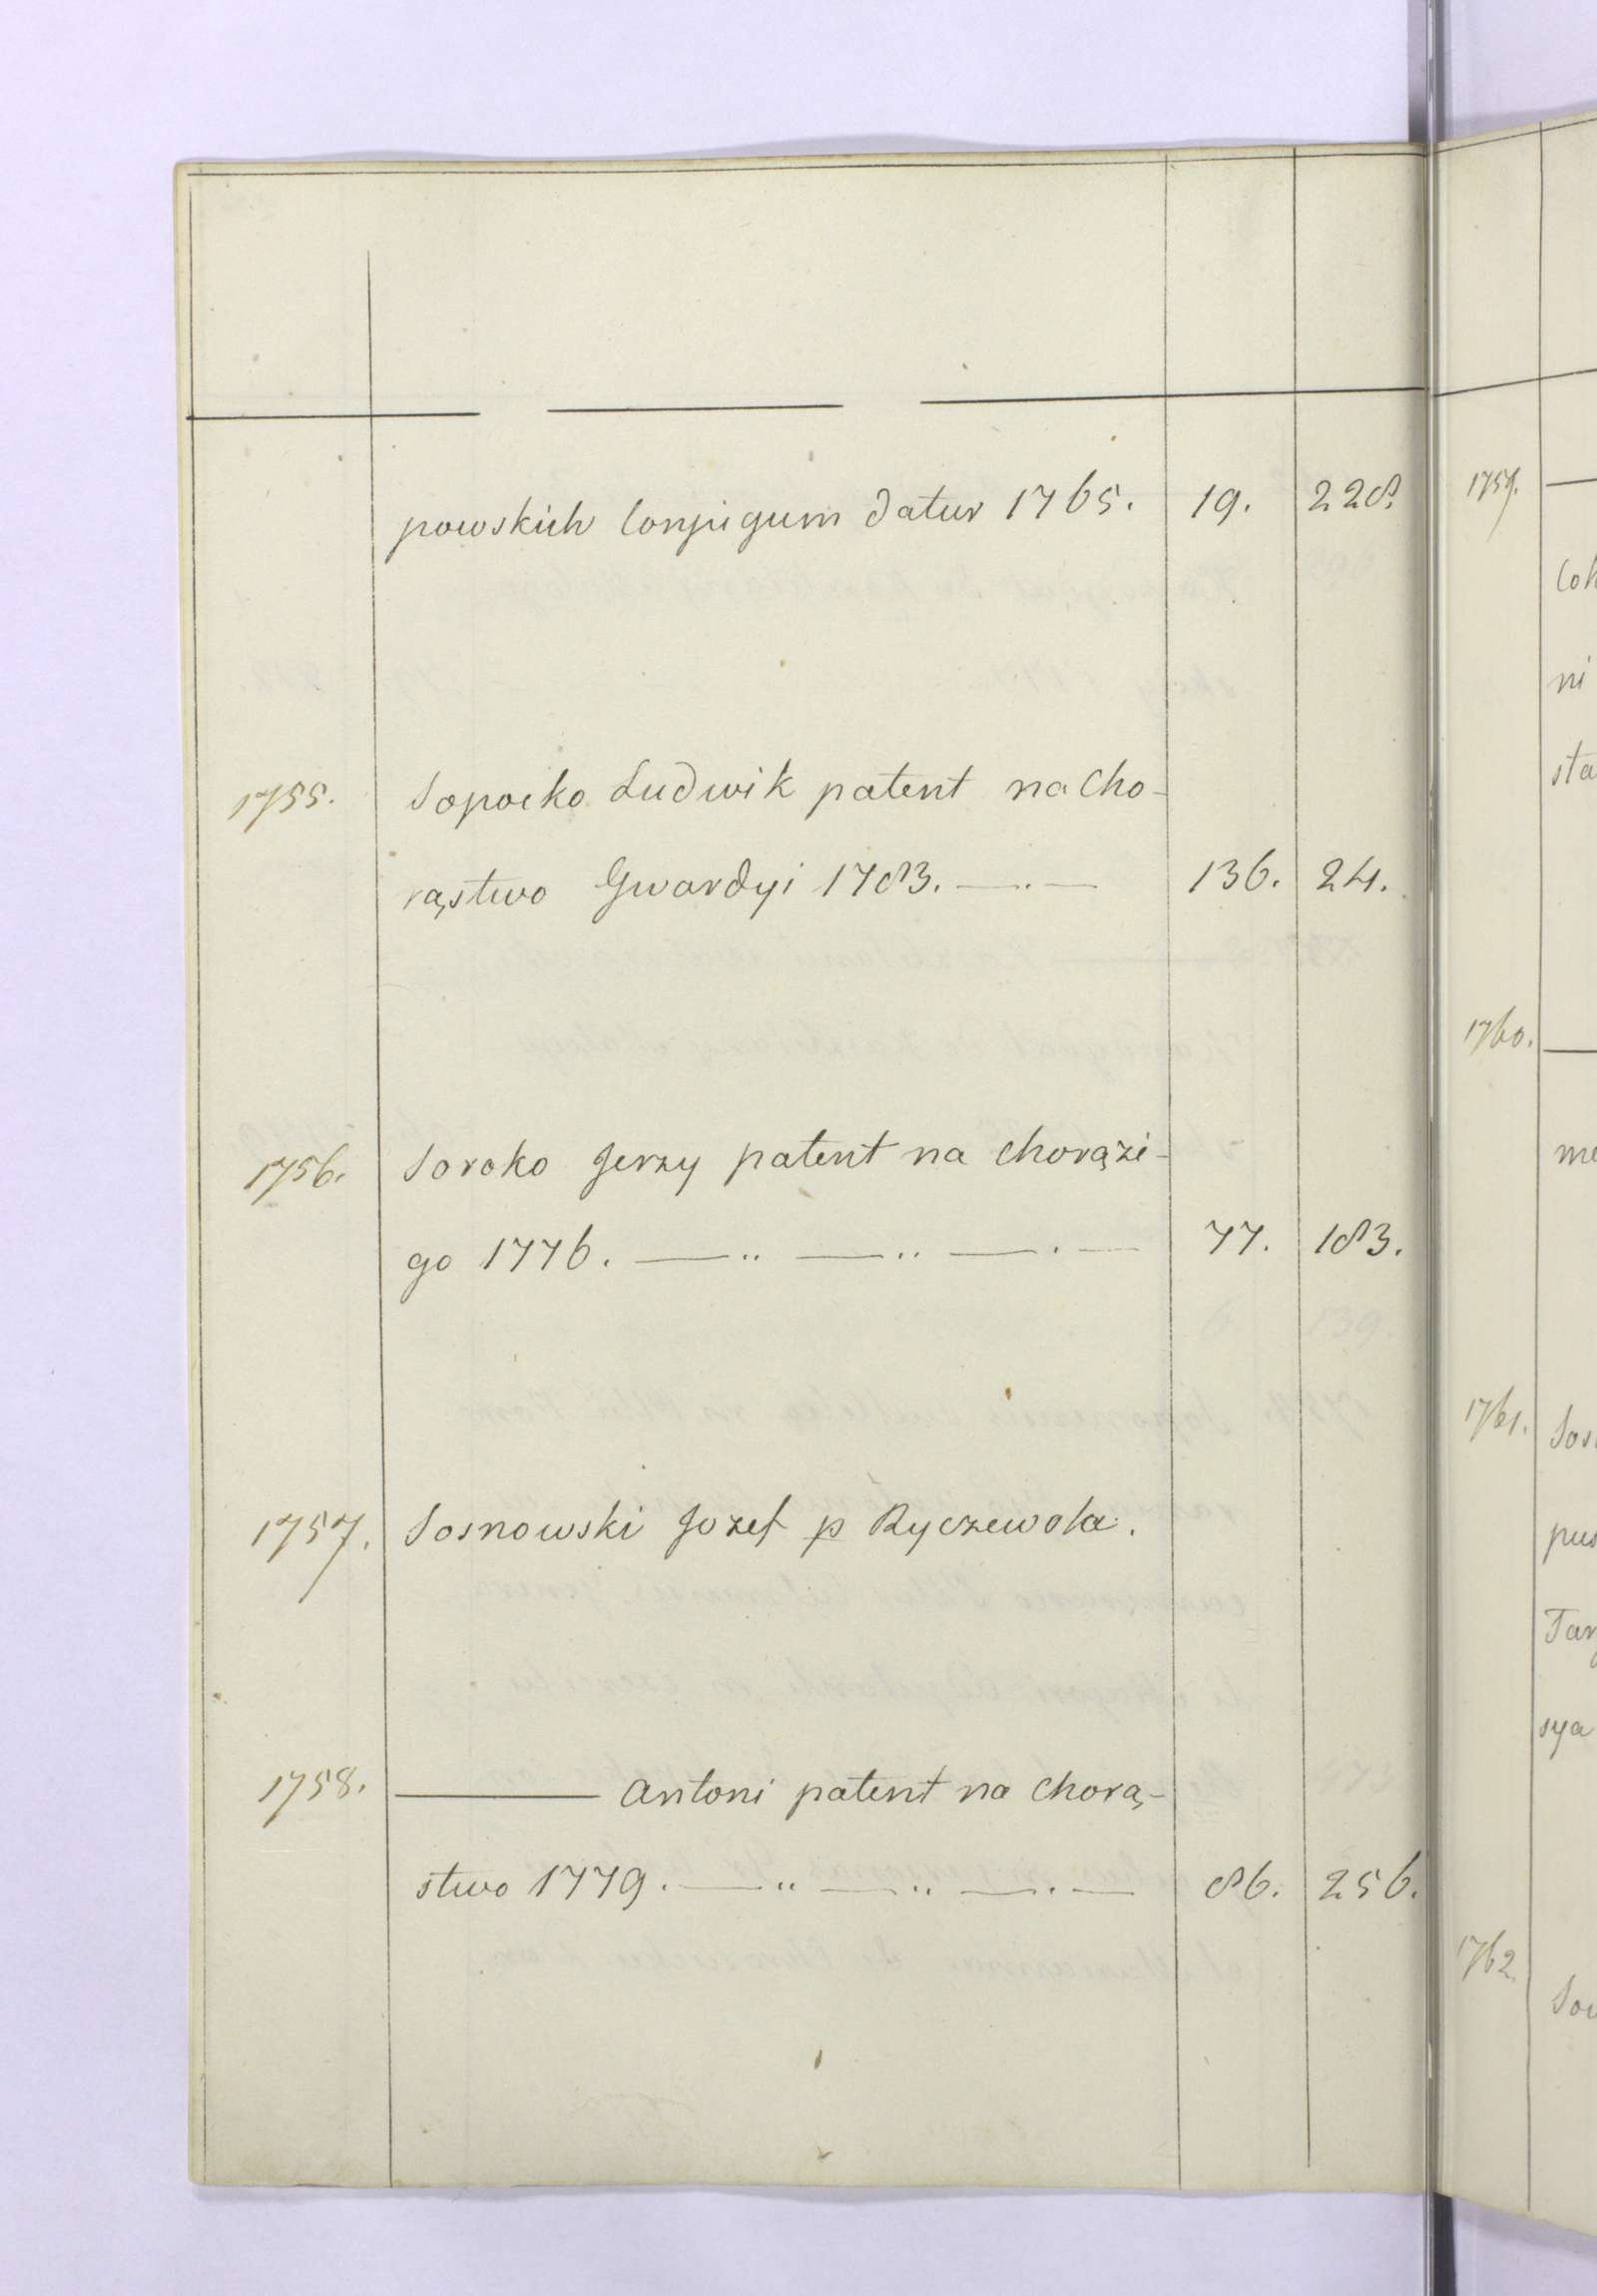 powskich Conjugum datur 1765. 19. 228.
1755. Sopoćko Ludwik patent na Cho-
rąstwo Gwardyi 1783. —..— 136. 24.
1756. Soroko Jerzy patent na Chorąże-
go 1776. —..—..—.— 77. 183.
1757. Sosnowski Jozef p Ryczewola.
1758. ——— Antoni patent na Chorą-
stwo 1779. —..—..—.— 86. 256.
1759. —
ni
sta
1760. —
me
1761. Sos
pus
Tar
sya
1762.